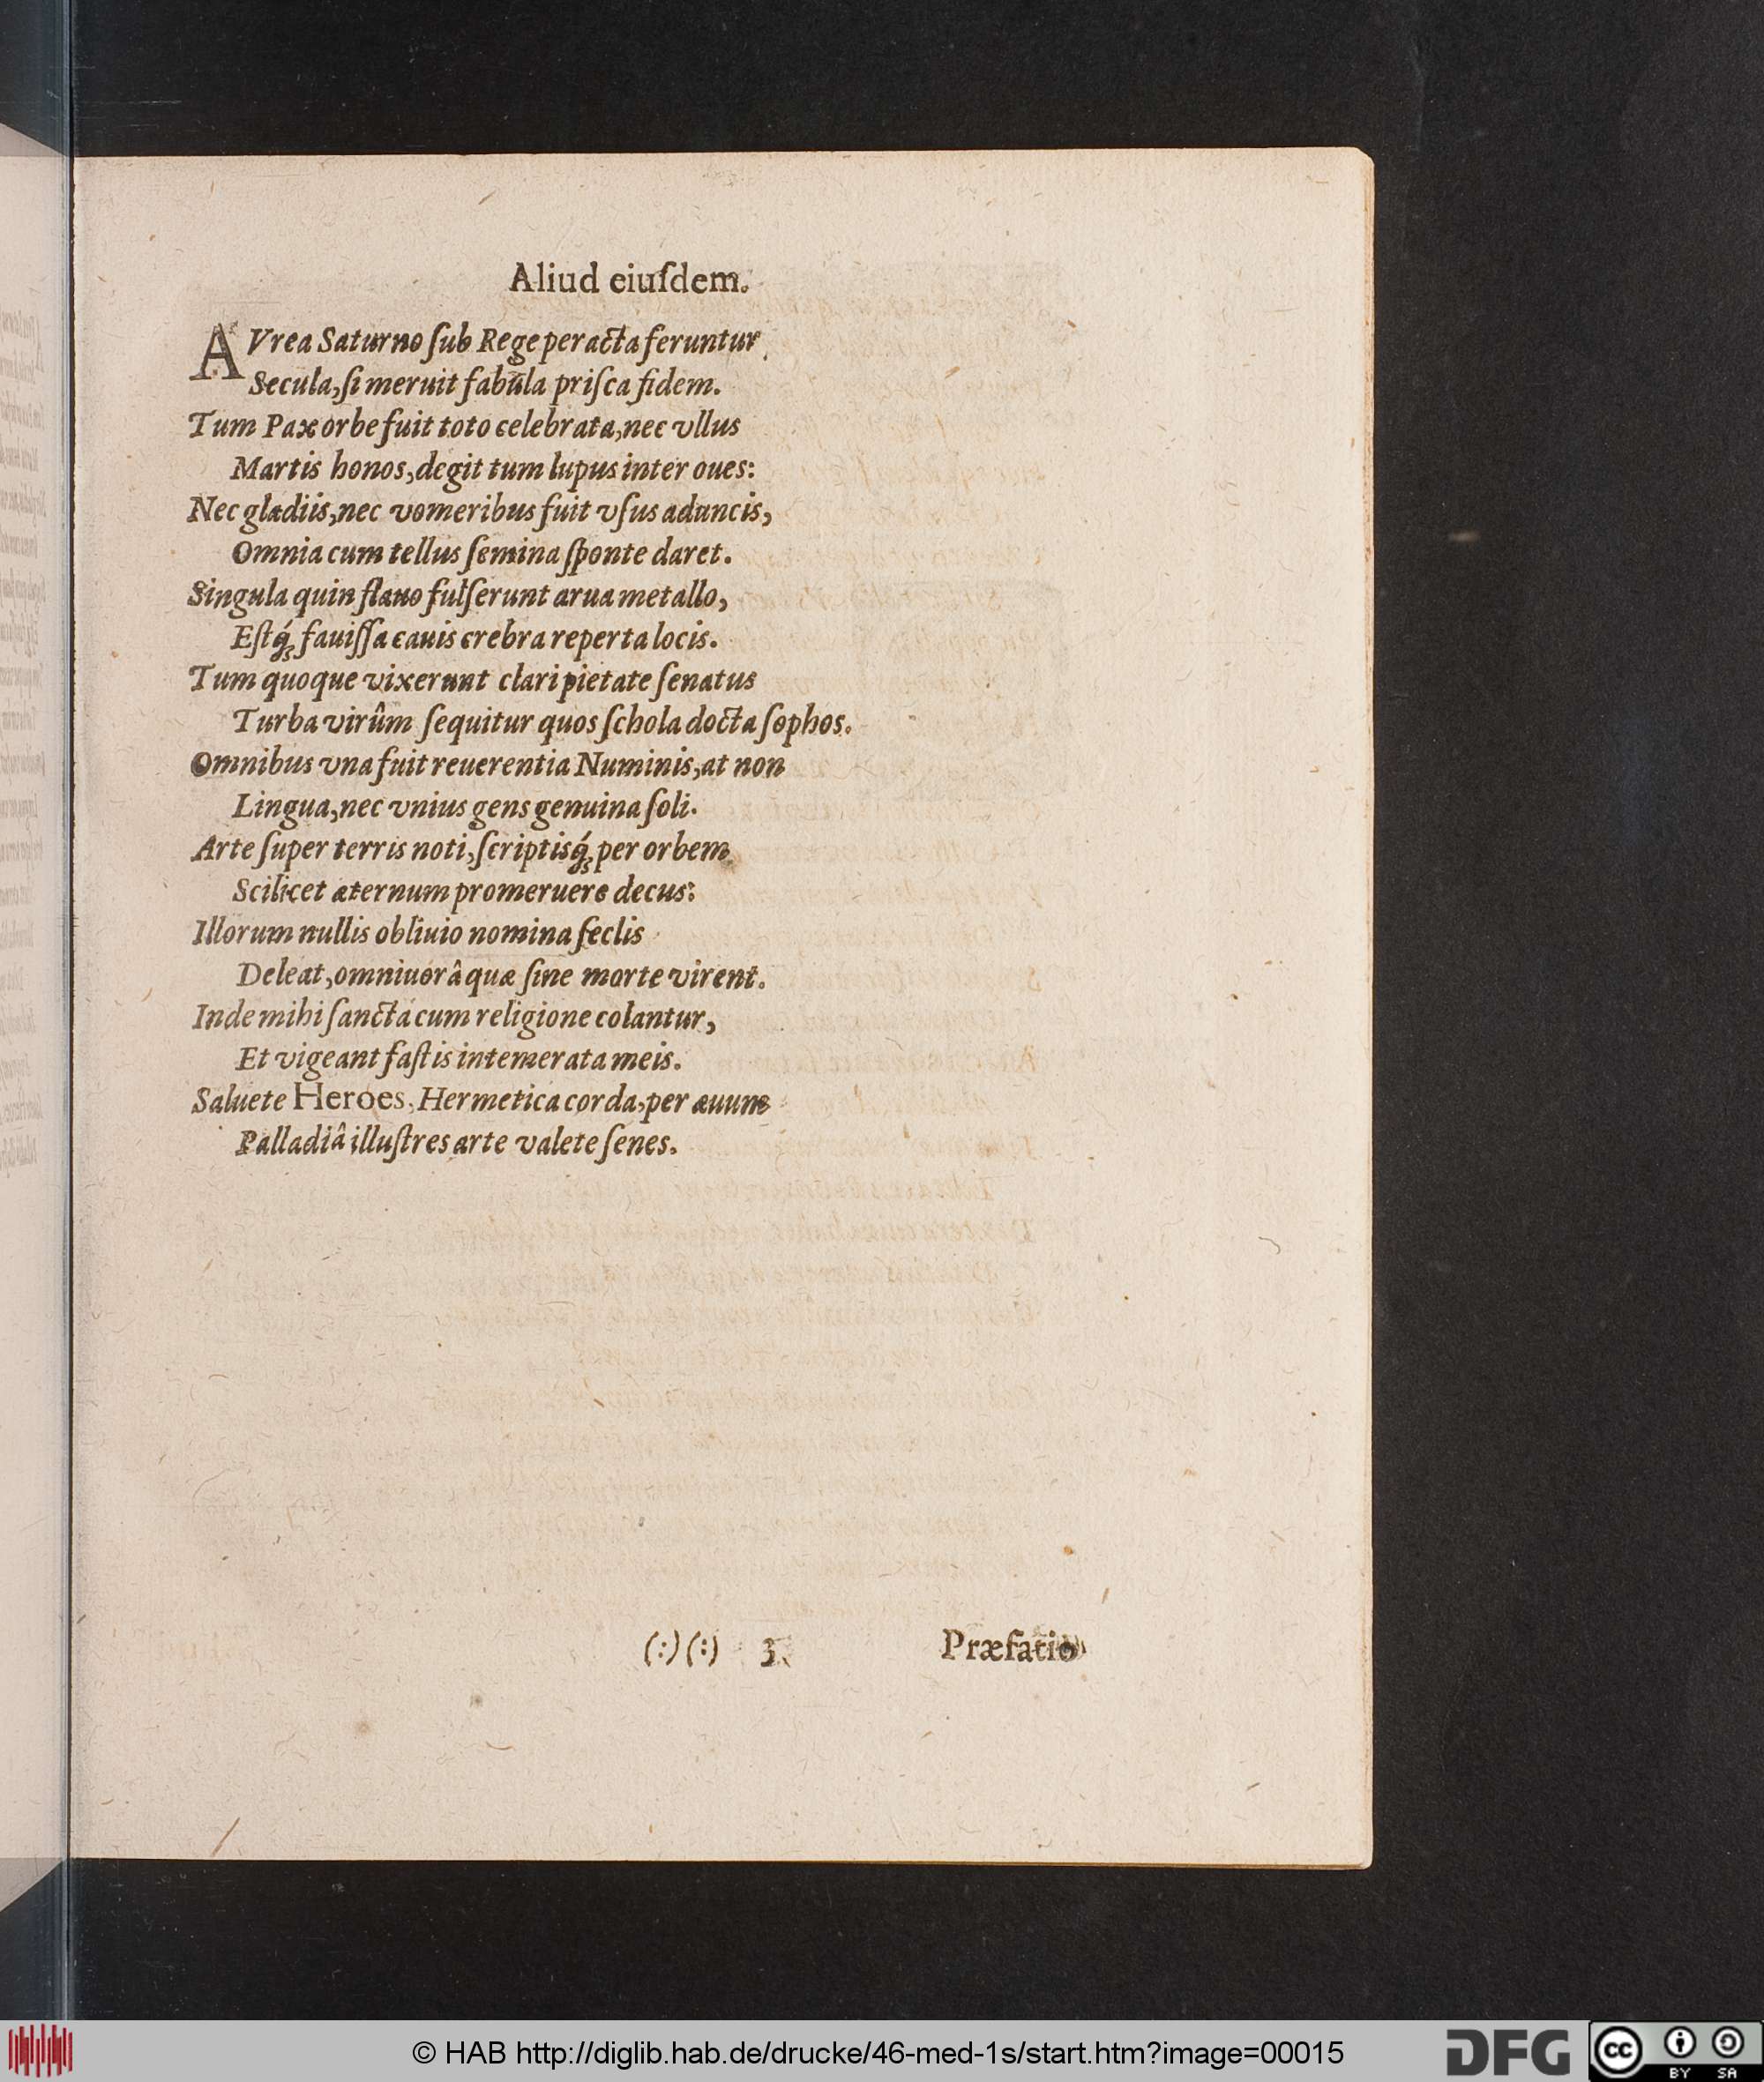 Aliud eiuſdem.
AVrea Saturno ſub Rege peracta feruntur
Secula, ſi meruit fabula priſca fidem.
Tum Pax orbe fuit toto celebrata, nec vllus
Martis honos, degit tum lupus inter oues:
Nec gladiis, nec vomeribus fuit vſus aduncis,
Omnia cum tellus ſemina ſponte daret.
Singula quin flauo fulſerunt arua metallo,
Eſtq́; fauiſſa cauis crebra reperta locis.
Tum quoque vixerunt clari pietate ſenatus
Turba virûm ſequitur quos ſchola docta ſophos.
Omnibus vna fuit reuerentia Numinis, at non
Lingua, nec vnius gens genuina ſoli.
Arte ſuper terris noti, ſcriptisq́; per orbem
Scilicet æternum promeruere decus:
Illorum nullis obliuio nomina ſeclis
Deleat, omniuorâ quæ ſine morte virent.
Inde mihi ſancta cum religione colantur,
Et vigeant faſtis intemerata meis.
Saluete Heroes, Hermetica corda, per æuum
Palladiâ illuſtres arte valete ſenes.
(:) (:) 3.
Præfatio
© HAB http://diglib.hab.de/drucke/46-med-1s/start.htm?image=00015
DFG
cc BY SA